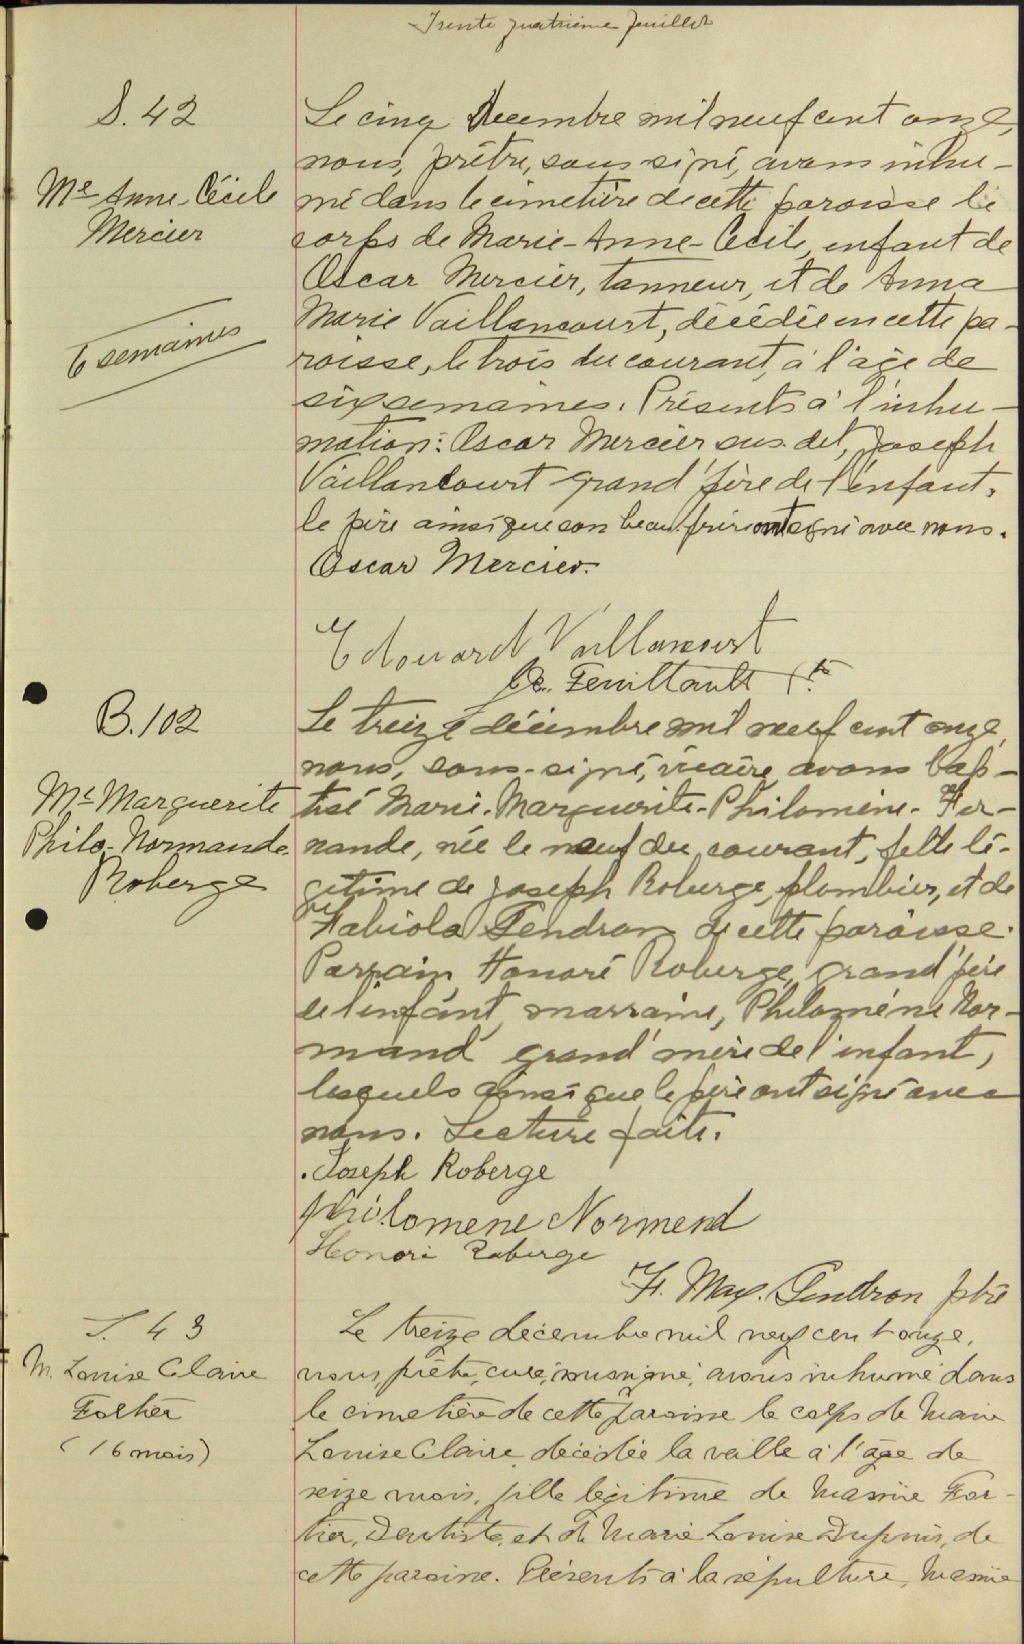 Trente quatrième feuillet
S. 42
Me Anne-Cécile
Mercier
6 semaines
Le cinq Decembre mil neuf cent onze,
nous, prêtre, sous signé, avons inhu-
mé dans le cimetière de cette paroisse le
corps de Marie-Anne-Cecile, enfant de
Oscar Mercier, tanneur, et de Anna
Marie Vaillancourt, décédée en cette pa-
roisse, le trois du courant, à l'âge de
six semaines. Présents à l'inhu-
mation: Oscar Mercier sus dit, Joseph
Vaillancourt grand'père de l'enfant,
le père ainsi que son beau frère ont signé avec nous.
Oscar Mercier.
Edouard Vaillancourt
Feuiltault Ptre
B. 102
Me Marguerite
Philo-Normande
Roberge
Le treize décembre mil neuf cent onze,
nous, sous-signé, vicaire avons bap-
tisé Marie-Marguerite-Philomène-Fer-
nande, née le neuf du courant, fille lé-
gitime de Joseph Roberge, plombier, et de
Fabiola Gendron de cette paroisse.
Parrain, Honoré Roberge, grand'père
de l'enfant, marraine, Philomène Nor-
mand grand'mère de l'enfant,
lesquels ainsi que le père ont signé avec
nous. Lecture faite.
Joseph Roberge
Philomene Normend
Honoré Roberge
H. Max. Gendron ptre
S. 43
M. Louise Claire
Fortier
(16 mois)
Le treize décembre mil neuf cent onze,
nous, prêtre, curé, soussigné, avons inhumé dans
le cimetière de cette paroisse le corps de Marie
Louise Claire, décédée la veille à l'âge de
seize mois, fille légitime de Massüe For-
tier, Dentiste, et de Marie Louise Dupuis, de
cette paroisse. Présents à la sépulture, Massüe